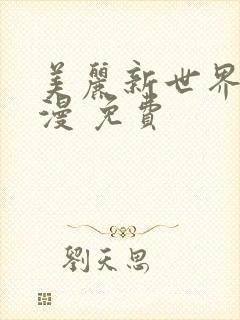 美麗新世界
漫 免費
劉天思